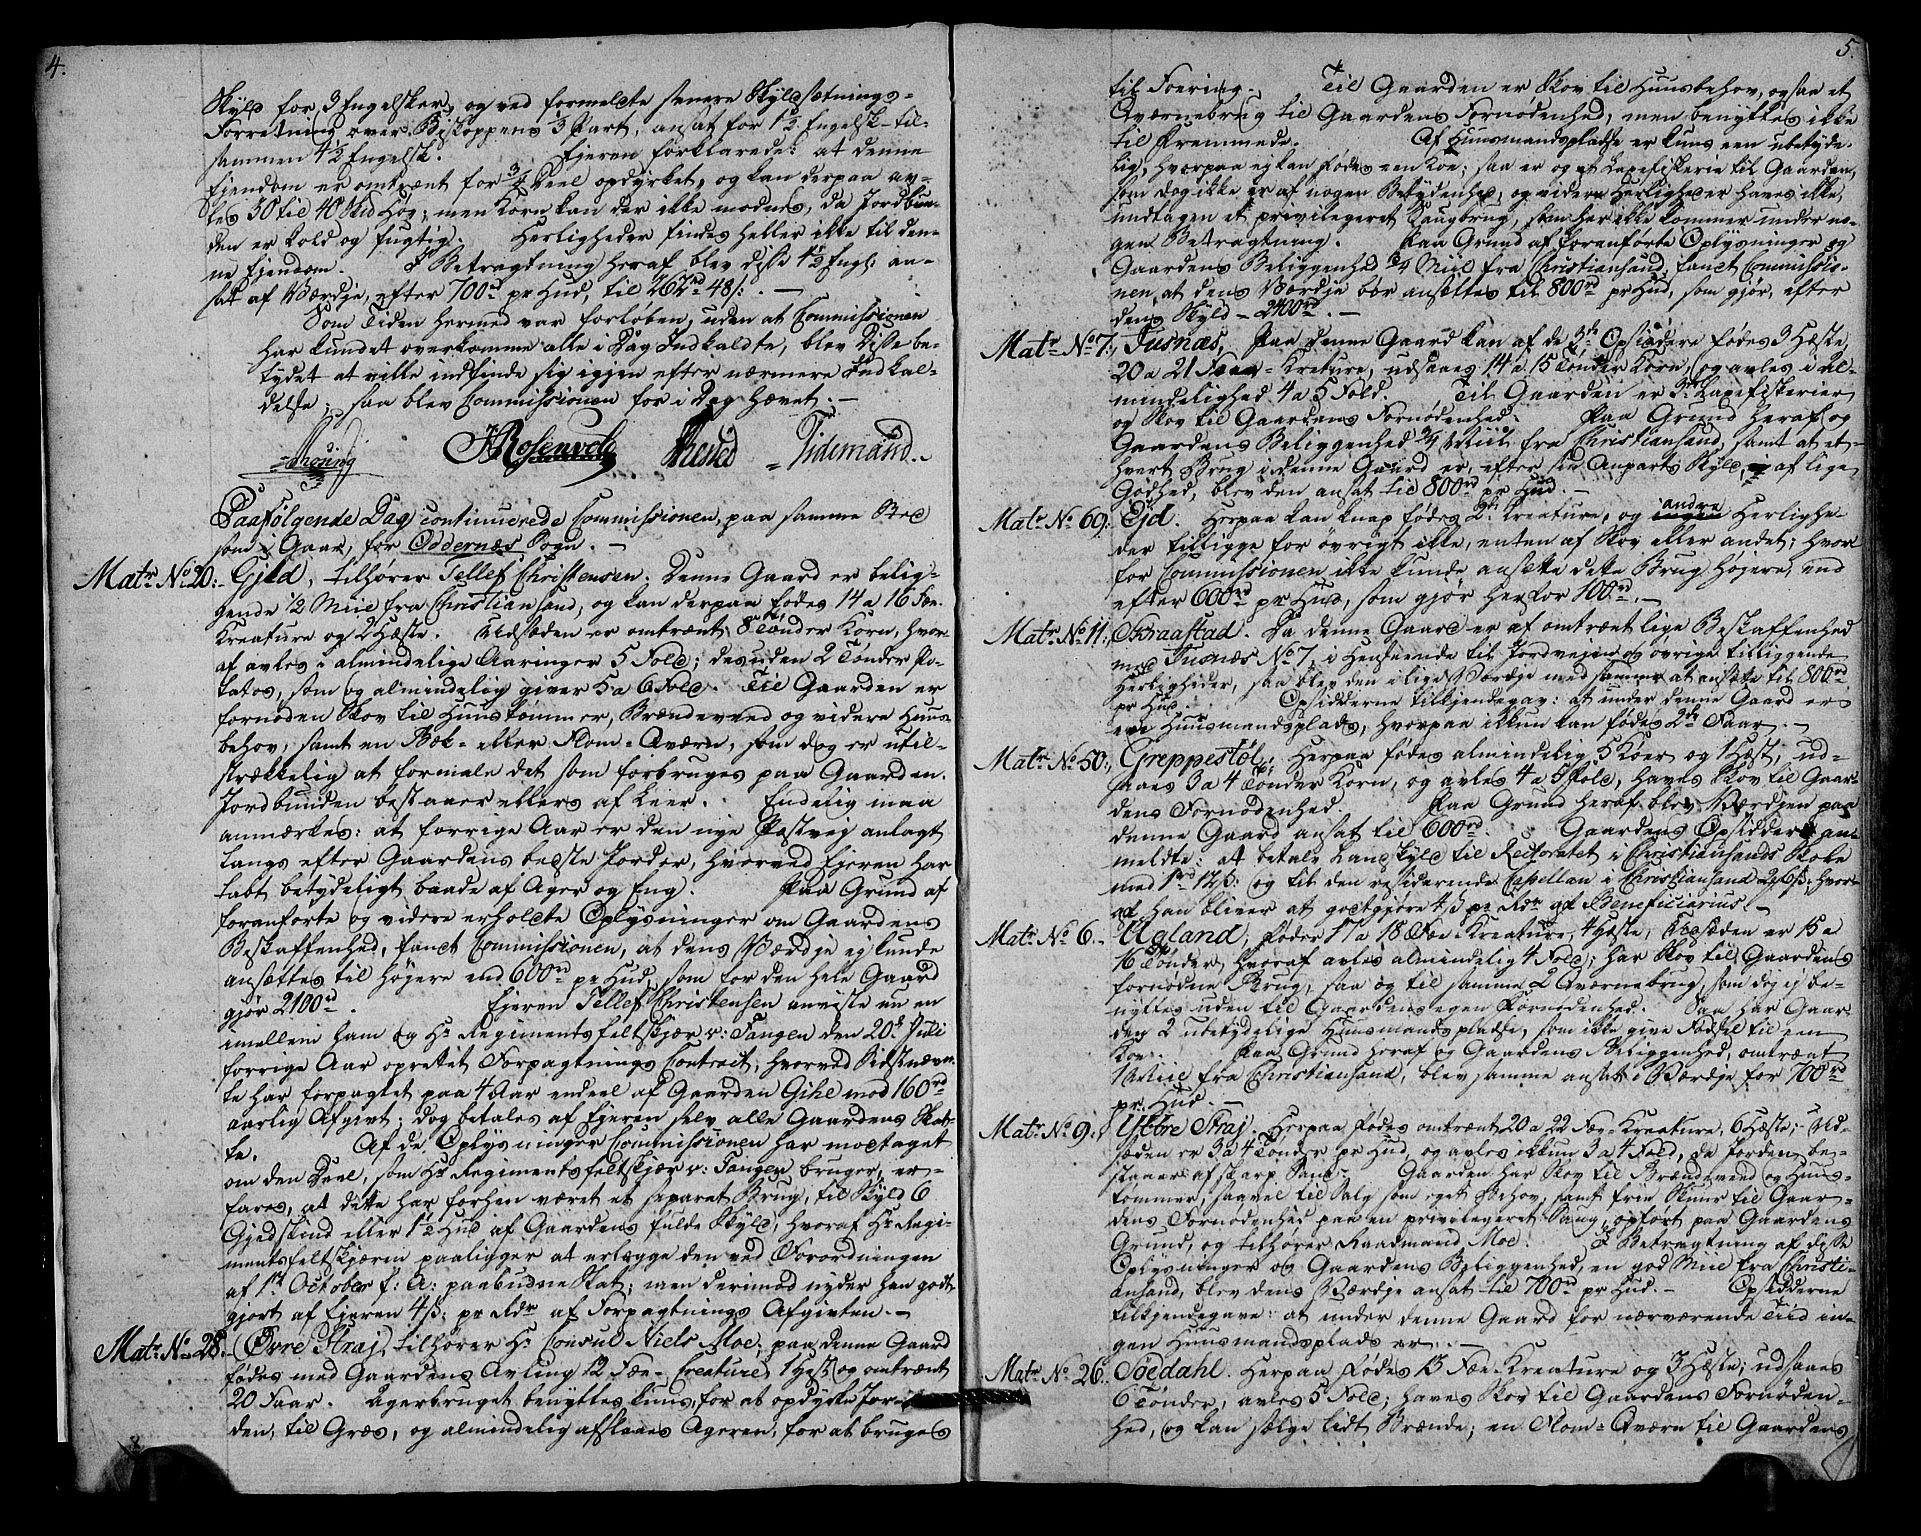 4.
Skyld for 3 Engelsker, og ved formeldte senere Skyldsætnings-
Forretning over Biskoppens 1/3 Part, ansat for 1½ Engelsk - til-
sammen 4½ Engelsk. Ejeren forklarede: at denne
Ejendom er omtrent for 3/4 Deel opdyrket, og kan derpaa av-
les 30 til 40 Stud Høy; men Korn kan der ikke modnes, da Jordbun-
den er kold og fugtig. Herligheder findes heller ikke til den-
ne Ejendom. I Betragtning heraf blev disse 4½ Engl: an-
sat af Værdje, efter 700rd pr Hud, til 262rd 48ß. -
Som Tiden hermed var forløben, uden at Commissionen
har kundet overkomme alle i Dag Indkaldte, blev Disse be-
tydet at ville indfinde sig igjen efter nærmere Indkal-
delse; saa blev Commissionen for i Dag hævet. -
JRosenvold Tidemand.
Paafølgende Dag continuerede Commissionen, paa samme Sted
som i Gaar, for Oddernæs Sogn. -
Matr No 20: Gjld, tilhører Tellef Christensen. Denne Gaard er belig-
gende 1/2 Miil fra Christiansand, og kan derpaa fødes 14 a 16 Fæ-
Kreature og 2 Hæste. Udsæden er omtrent 8 Tønder Korn, hvor-
af avles i almindelige Aaringer 5 Fold; desuden 2 Tønder Po-
tatos, som og almindelig giver 5 a 6 Fold. Til Gaarden er
fornøden Skov til Huustømmer, Brændeveed og videre Huus-
behov, samt en Bæk- eller Flom-Qværn, som dog er util-
strækkelig at formale det som forbruges paa Gaarden.
Jordbunden bestaaer ellers af Leer. Endelig maa
anmærkes: at forrige Aar er den nye Postvej anlagt
langs efter Gaardens bedste Jorder, hvorved Ejeren har
tabt betydeligt baade af Ager og Eng. Paa Grund af
foranførte og videre erholdte Oplysninger om Gaardens
Beskaffenhed, fandt Commissionen, at dens Værdje ej kunde
ansættes til højere end 600rd pr Hud, som for den hele Gaard
gjør 2100rd. Ejeren Tellef Christensen anviste nu en
imellem ham og Hr Regimentsfeltskjær v: Tangen den 20de Juli
forrige Aar oprettet Forpagtnings Contract, hvorved Sidstnævn-
te har forpagtet paa 4 Aar endeel af Gaarden Gihe mod 160rd
aarlig Afgivt; dog betales af Ejeren selv alle Gaardens Skat-
te. Af de Oplysninger Commissionen har modtaget
om den Deel, som Hr Regimentsfeltskjær v: Tangen bruger, er-
fares, at dette har forhen været et separat Brug, til Skyld 6
Gjedskind eller 1½ Hud af Gaardens fulde Skyld, hvoraf Hr Regi-
mentsfeltskjæren paaligger at erlægge den ved Forordningen
af 1ste October f: A: paabudne Skat; men derimod nyder han godt-
gjort af Ejeren 4ß: pr Rdr af Forpagtnings Afgivten. -
Matr No 28. Øvre Straj, tilhører Hr Consul Niels Moe; paa denne Gaard
fødes med Gaardens Avling 12 Fæ-Creature, 1 Hest, og omtrent
20 Faar. Agerbruget benyttes kuns, for at opdyrke Jor-
den, til Græs, og almindelig afslaaes Ageren, for at bruges
5.
til Foering. Til Gaarden er Skov til Huusbehov, ogsaa et
Qværnebrug til Gaardens Fornødenhed, men benyttes ikke
til Fremmede. Af Huusmandspladse er kuns een ubetyde-
lig, hvorpaa ej kan fødes een Koe; saa er og et Laxefiskerie til Gaarden,
som dog ikke er af nogen Betydenhed, og videre Herligheder haves ikke,
undtagen et privilegeret Saugbrug, som her ikke kommer under no-
gen Betragtning. Paa Grund af foranførte Oplysninger og
Gaardens Beliggenhed 3/4 Miil fra Christiansand, fandt Commissio-
nen, at dens Værdje bør ansættes til 800rd pr Hud, som gjør, efter
dens Skyld - 2400rd. -
Matr No 7. Tusnæs, Paa denne Gaard kan af de 3de Opsiddere fødes 3 Hæste,
20 a 21 Fæe-Kreature, udsaaes 14 a 15 Tønder Korn, og avles i al-
mindelighed 4 a 5 Fold. Til Gaarden er 3de Laxefiskerier
og Skov til Gaardens Fornødenhed. Paa Grund heraf og
Gaardens Beliggenhed 3/4 Miil fra Christiansand, samt at et-
hvert Brug i denne Gaard er, efter sin Anparts Skyld, af lige
Godhed, blev den ansat til 800rd pr Hud. -
Matr No 69: Ejd. Herpaa kan knap fødes 2de Kreature, og andre Herlighe-
der tilligge for øvrigt ikke, enten af Skov eller andet; hvor-
for Commissionen ikke kunde ansætte dette Brug højere, end
efter 600rd pr Hud, som gjør herfor 100rd. -
Matr No 11. Straastad. Da denne Gaard er af omtrent lige Beskaffenhed
med Tusnæs No 7, i Henseende til Jordvejen og øvrige tilliggende
Herligheder, saa blev den i lige Værdje med samme at ansætte til 800rd
pr Hud. Opsidderne tilkjendegav: at under denne Gaard er
een Huusmandsplads, hvorpaa ikkun kan fødes 2de Faar. -
Matr No 50: Greppestøl; Herpaa fødes almindelig 5 Køer og 1 Hæst, ud-
saaes 3 a 4 Tønder Korn, og avles 4 a 5 Fold, haves Skov til Gaar-
dens Fornødenhed. Paa Grund heraf blev Værdjen paa
denne Gaard ansat til 600rd. Gaardens Opsidder an-
meldte: at betale Landskyld til Rectoratet i Christiansands Skole
med 1rd 12ß: og til den residerende Capellan i Christiansand 2rd 6ß: hvor-
af han bliver at godtgjøre 4ß pr Rdr af Beneficiarius. -
Matr No 6. Ugland, føder 17 a 18 Fæe-Kreature, 4 Hæste, Udsæden er 15 a
16 Tønder, hvoraf avles almindelig 4 Fold; har Skov til Gaardens
fornødne Brug, saa og til samme 2 Qværnebrug, som dog ej be-
nyttes uden til Gaardens egen Fornødenhed. Saa har Gaar-
den 2 ubetydelige Huusmandspladse, som ikke give Fødsel til een
Koe. Paa Grund heraf og Gaardens Beliggenhed, omtrent
1 Miil fra Christiansand, blev samme ansat i Værdje for 700rd
pr Hud. -
Matr No 9. Ydre Straj. Herpaa fødes omtrent 20 a 22 Fæe-Kreature, 6 Hæste; - Ud-
sæden er 3 a 4 Tønder pr Hud, og avles ikkun 3 a 4 Fold, da Jorden be-
staaer af skarp Sand. Gaarden har Skov til Brændeveed og Huus-
tømmer, saavel til Salg som eget Behov; samt frie Skuur til Gaar-
dens Fornødenhed paa en privilegeret Saug, opført paa Gaardens
Grund, og tilhører Raadmand Moe. I Betragtning af disse
Oplysninger og Gaardens Beliggenhed, en god Miil fra Christi-
ansand, blev dens Værdje ansat til 700rd pr Hud. - Opsidderne
tilkjendegave: at under denne Gaard for nærværende Tiid in-
gen Huusmandsplads er. -
Matr No 26. Søedahl. Herpaa fødes 15 Fæe-Kreature og 3 Hæste; udsaaes
6 Tønder, avles 5 Fold; haves Skov til Gaardens Fornøden-
hed, og kan sælge lidt Brænde; en Flom-Qværn til Gaardens